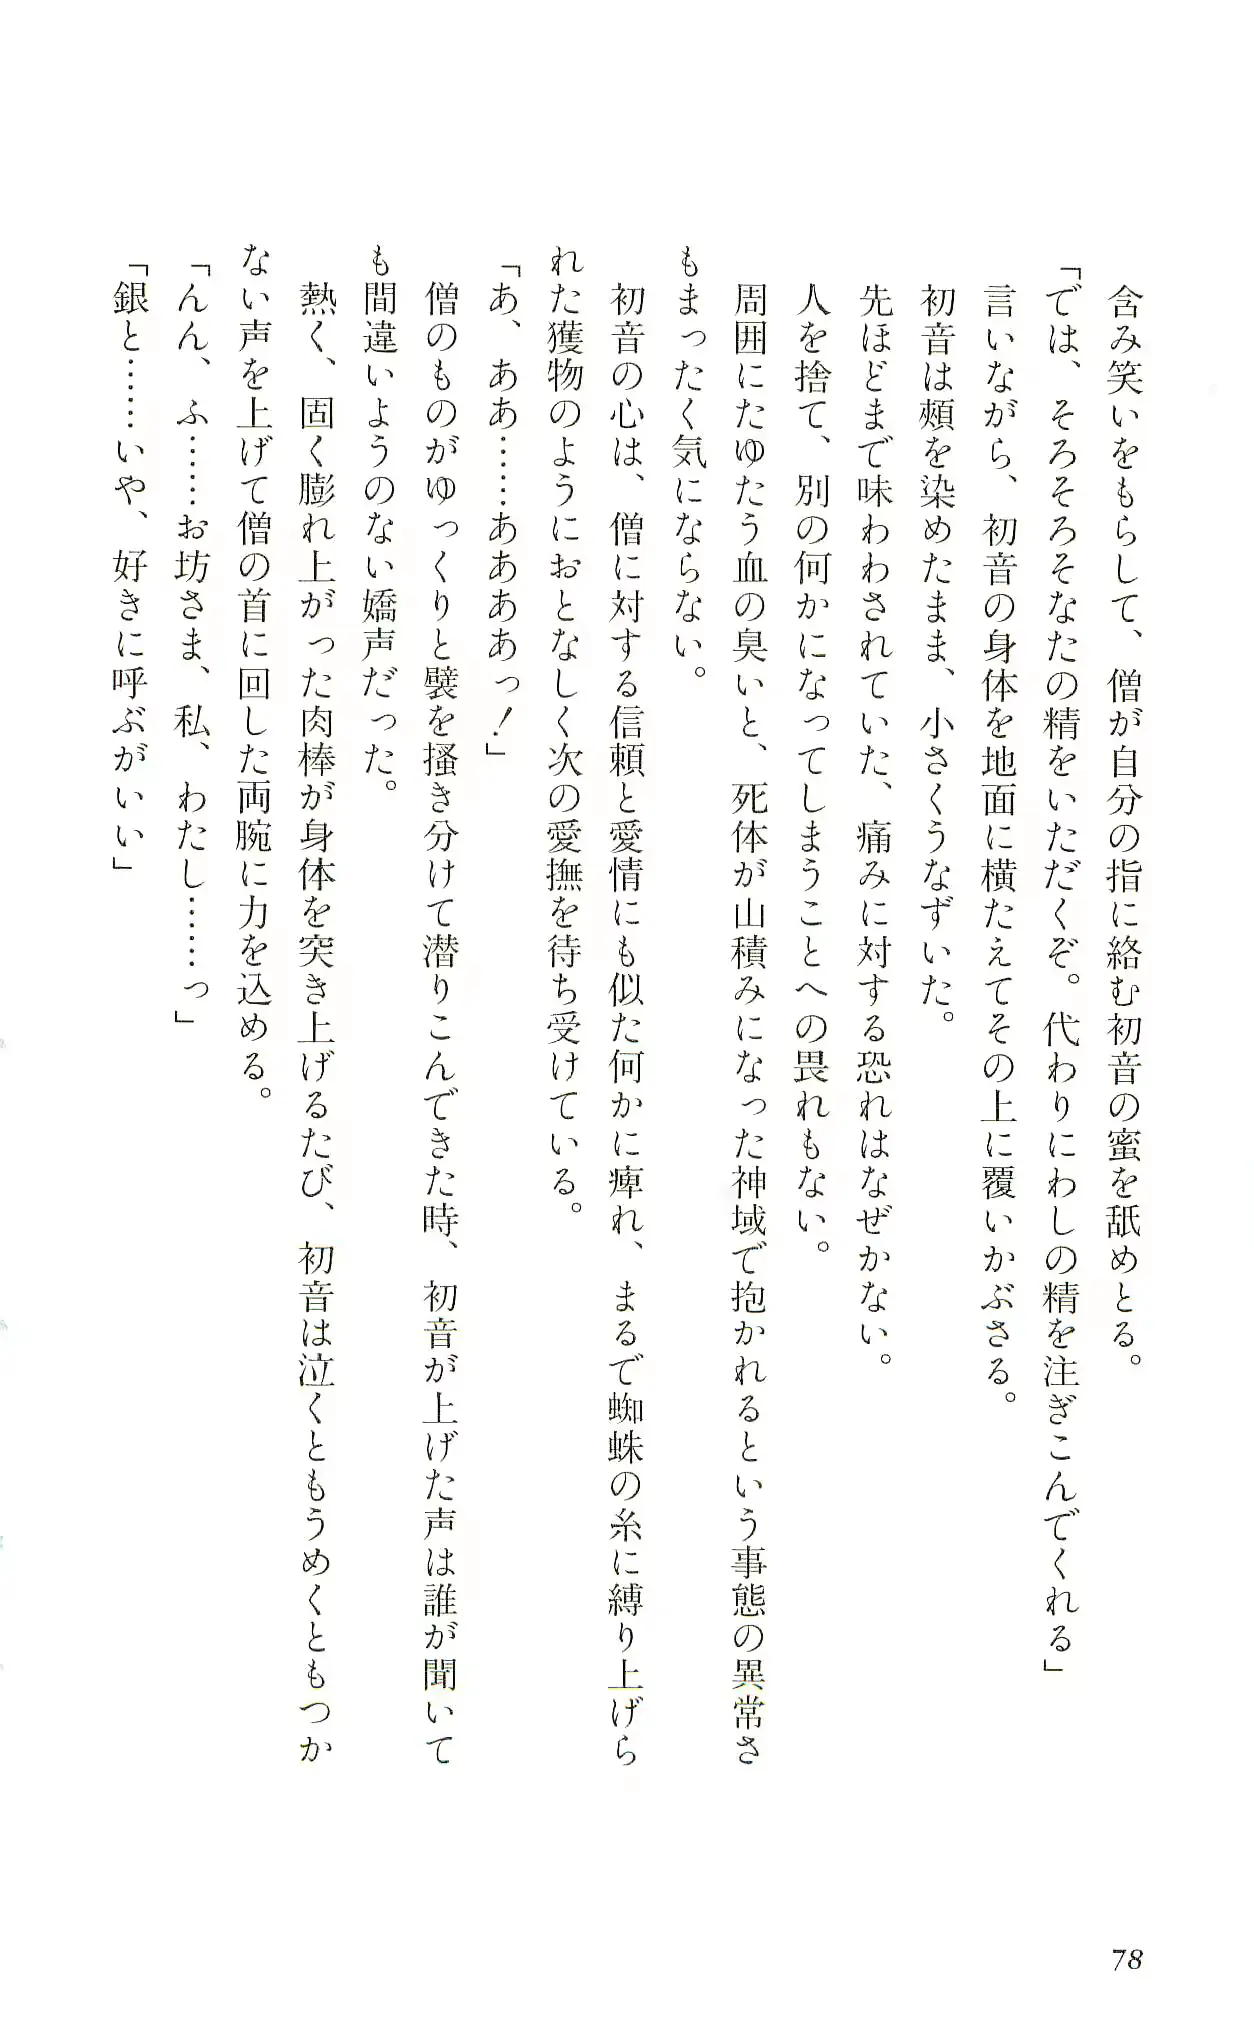 含み笑いをもらして、僧が自分の指に絡む初音の蜜を舐めとる。
「では、そろそろそなたの精をいただくぞ。代わりにわしの精を注ぎこんでくれる」
言いながら、初音の身体を地面に横たえてその上に覆いかぶさる。
初音は頰を染めたまま、小さくうなずいた。
先ほどまで味わわされていた、痛みに対する恐れはなぜかない。
人を捨て、別の何かになってしまうことへの畏れもない。
周囲にたゆたう血の臭いと、死体が山積みになった神域で抱かれるという事態の異常さ
もまったく気にならない。
初音の心は、僧に対する信頼と愛情にも似た何かに痺れ、まるで蜘蛛の糸に縛り上げら
れた獲物のようにおとなしく次の愛撫を待ち受けている。
「あ、ああ……ああああっ！」
僧のものがゆっくりと襞を掻き分けて潜りこんできた時、初音が上げた声は誰が聞いて
も間違いようのない嬌声だった。
熱く、固く膨れ上がった肉棒が身体を突き上げるたび、初音は泣くともうめくともつか
ない声を上げて僧の首に回した両腕に力を込める。
「んん、ふ……お坊さま、私、わたし……っ」
「銀と……いや、好きに呼ぶがいい」
78